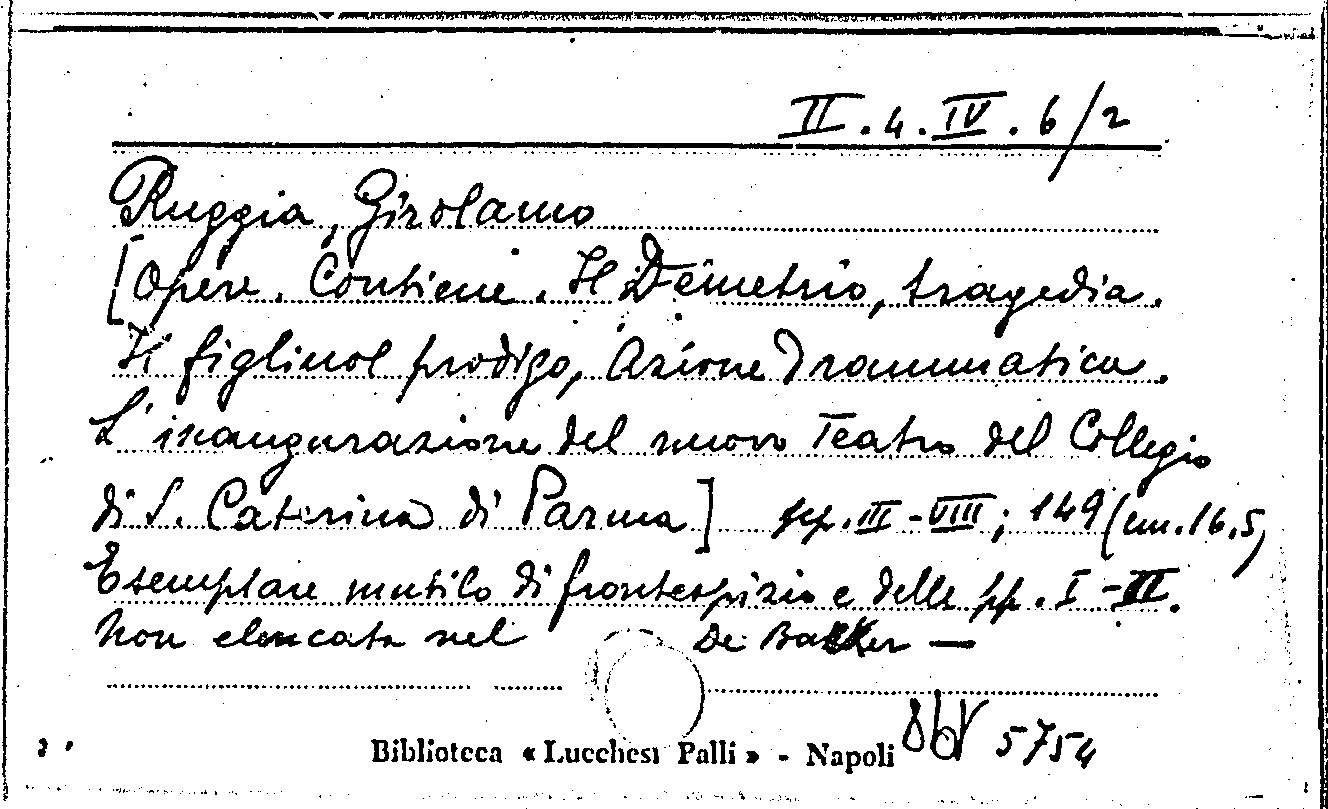 II.4.IV.6/2
Ruggia, Girolamo
[Opere. Contiene. Il Demetrio, tragedia.
Il figliuol prodigo, Azione Drammatica.
L'inaugurazione del nuovo Teatro del Collegio
di S. Caterina di Parma] pp. III-VIII; 149 (cm. 16,5)
Esemplare mutilo di frontespizio e delle pp. I-III.
Non elencata nel De Backer —
Biblioteca « Lucchesi Palli » - Napoli 5754